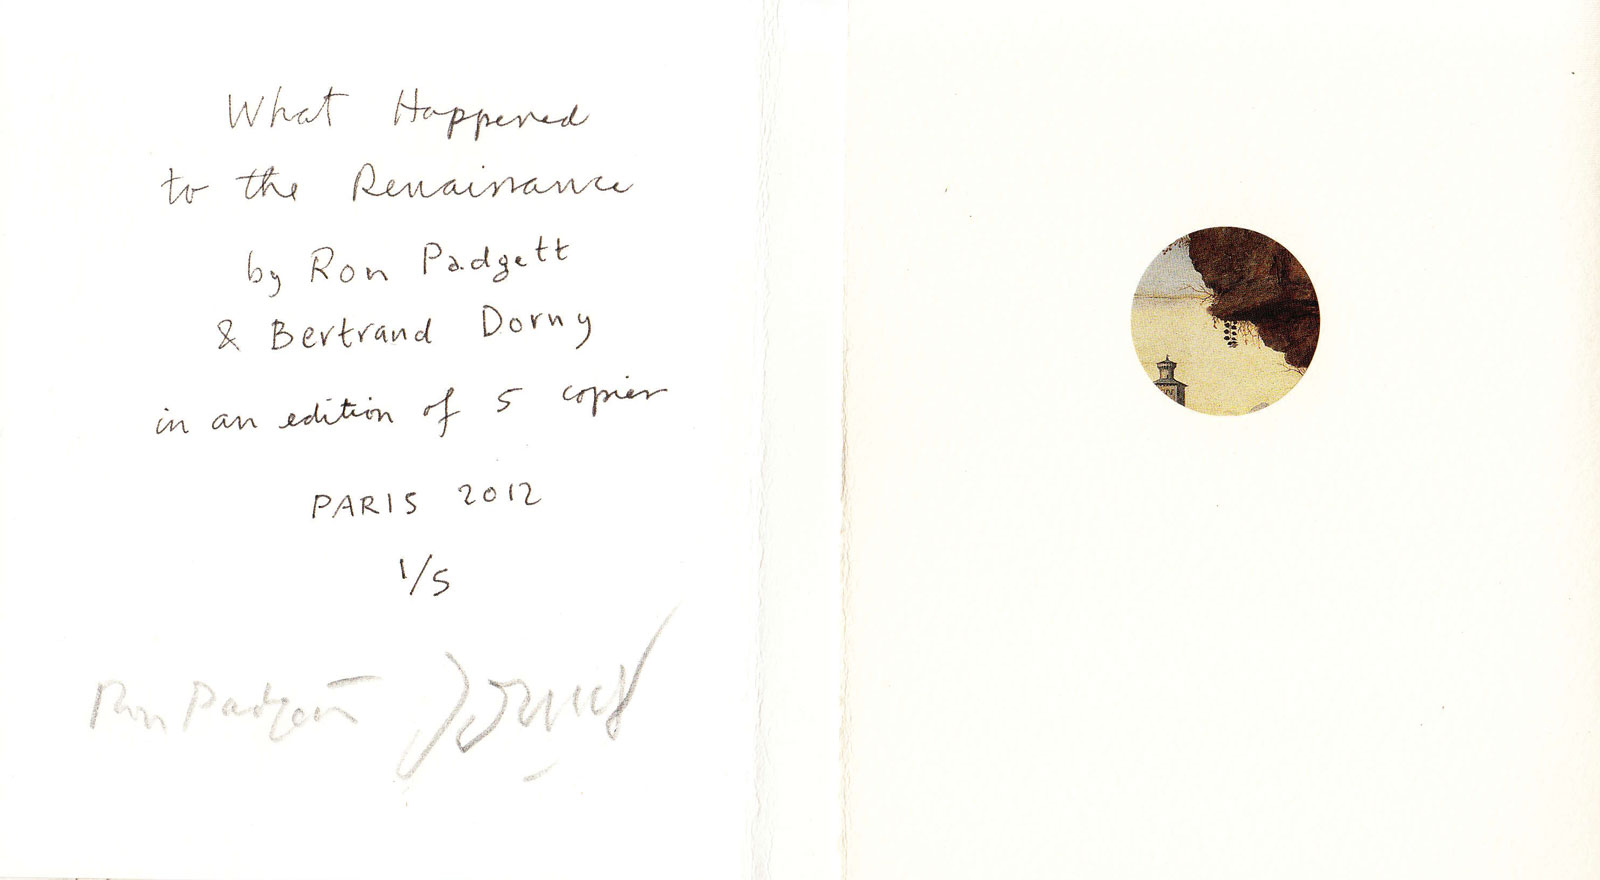 What Happened
to the Renaissance
by Ron Padgett
& Bertrand Dorny
in an edition of 5 copies
PARIS 2012
1/5
Ron Padgett Dorny